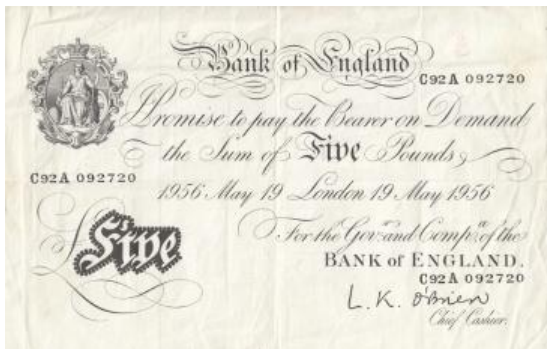 Bank of England
C92A 092720
Promise to pay the Bearer on Demand
the Sum of Five Pounds
C92A 092720
1956 May 19 London 19 May 1956
£Five
For the Govr. and Compa. of the
BANK of ENGLAND.
C92A 092720
L. K. O'Brien
Chief Cashier.